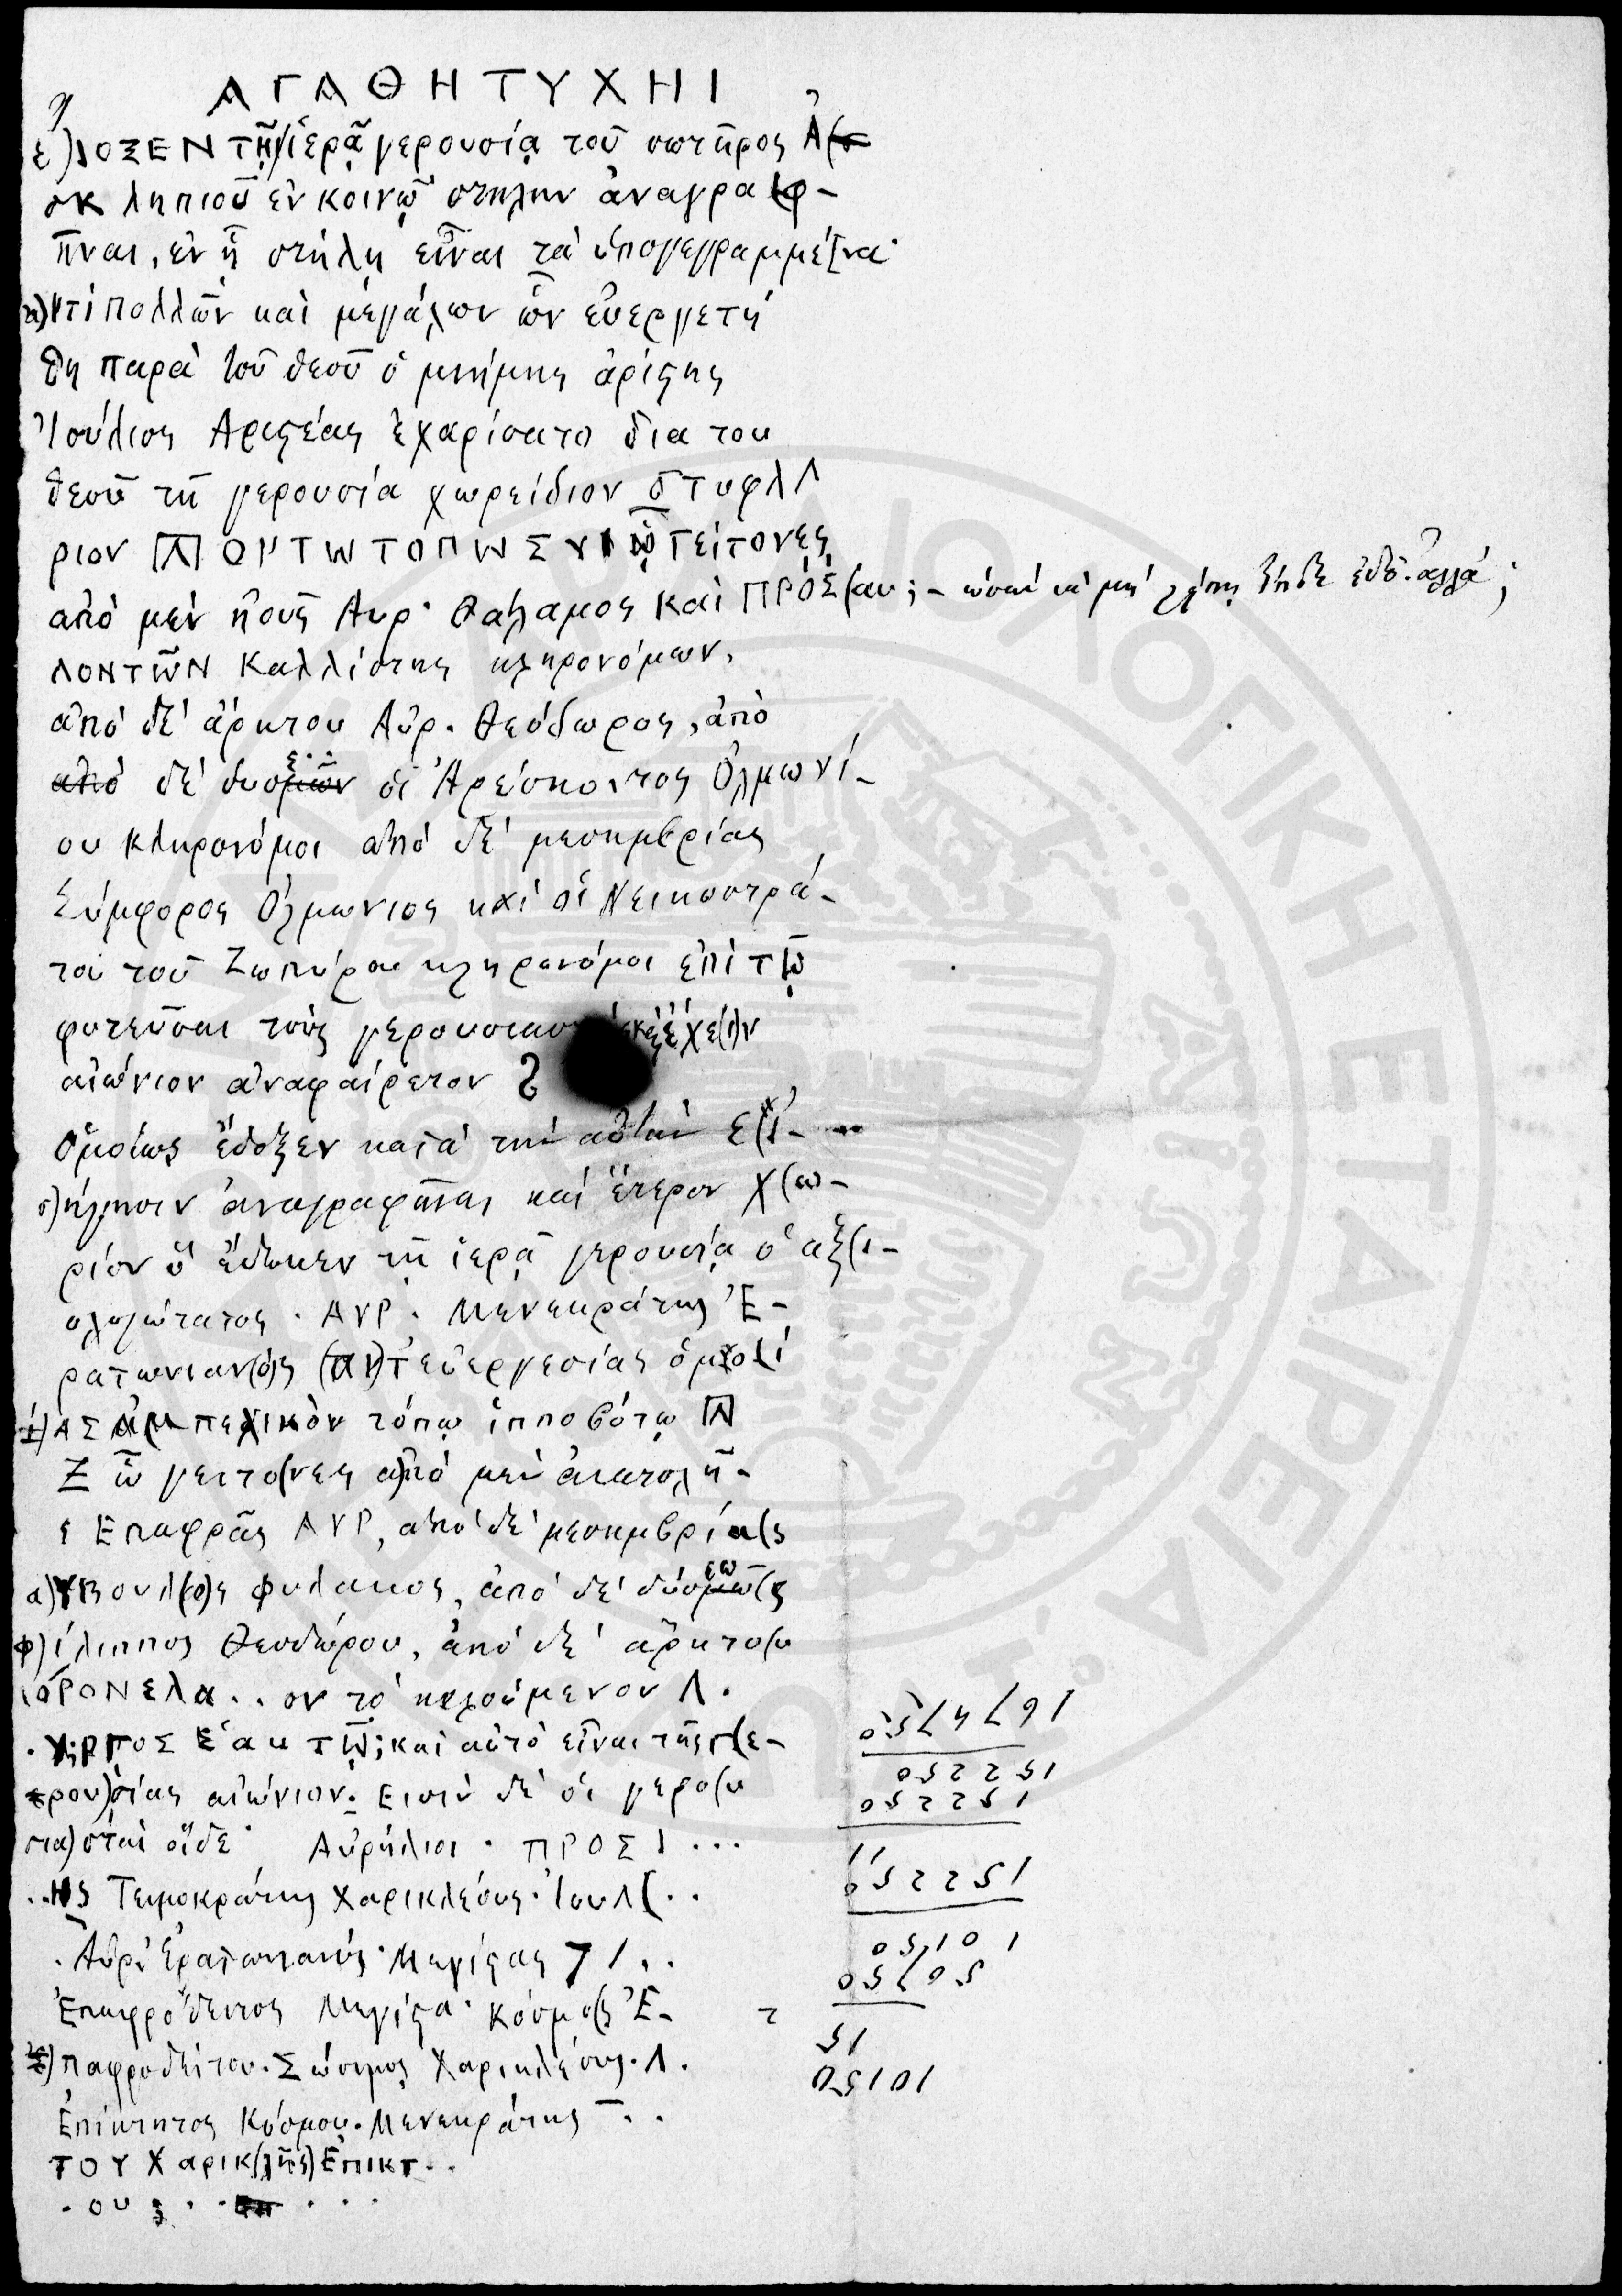 ΑΓΑΘΗ ΤΥΧΗΙ
ἔ)ΔΟΞΕΝ Τῇ ἱερᾷ γερουσίᾳ τοῦ σωτῆρος Ἀ(
σκληπιοῦ ἐν κοινῷ στηλην ἀναγραφ-
ῆναι, ἐν ᾗ στήλῃ εἶναι τὰ ὑπογεγραμμέ[να·
ἀ)ντὶ πολλῶν καὶ μεγάλων ὧν εὐεργετή
θη παρὰ τοῦ θεοῦ ὁ μνήμης ἀρίστης
Ἰούλιος Αριστέας ἐχαρίσατο δια του
θεοῦ τῇ γερουσίᾳ χωρείδιον
ριον ΟΝ ΤΩ ΤΟΠΩ ΣΥ Γείτονες
ἀπὸ μὲν ἠοῦς Αυρ· Θάλαμος καὶ ΠΡΟΣ(
ΛΟΝΤῶΝ Καλλίστης κληρονόμων,
ἀπὸ δὲ ἄρκτου Αὐρ. Θεόδωρος, ἀπὸ
ἀπὸ δὲ δυσμῶν οἱ Ἀρέσκοντος Ὀλμωνί-
ου κληρονόμοι ἀπὸ δὲ μεσημβρίας
Σύμφορος Ὀλμωνιος καὶ οἱ Νεικοστρά-
του τοῦ Ζωπύρου κληρονόμοι ἐπὶ τῷ
φυτεῦσαι τοὺς γερουσιασ ἔχε(ι)ν
αἰώνιον ἀναφαίρετον
Ὁμοίως ἔδοξεν κατὰ τὴν αὐτὴν ἐ(κ-
κ)λησιν ἀναγραφῆναι καὶ ἕτερον χ(ω-
ρίον ὃ ἔδωκεν τῇ ἱερᾷ γερουσίᾳ ὁ ἀξ(ι-
ολογώτατος· ΑΥΡ· Μενεκράτης Ἐ-
ρατωνιαν(ὸ)ς (ἀν)τ εὐεργεσίας ὁμοί
ΑΣ ἀμπελικὸν τόπῳ ἱπποβότῳ
Ζ ὧ γειτο(νες ἀ)πὸ μὲν ἀνατολῆ-
ς Επαφρᾶς ΑΥΡ, ἀπὸ δὲ μεσημβρία(ς
ΥΒουλ(ο)ς Φυλακος, ἀπὸ δὲ δυσμῶ(
Φ)ίλιππος Θεοδώρου, ἀπὸ δὲ ἄρκτο(υ
ΡΟΝΕΛΑ.. ον τὸ καλούμενον Λ.
καὶ αὐτὸ εἶναι τῆς γ(ε-
ρου)σίας αἰώνιον. Εἰσὶν δὲ οἱ γερο(υ
σια)σταὶ οἵδε· Αὐρήλιοι· ΠΡΟΣΙ...
..ΗΣ Τειμοκράτης Χαρικλέους· Ἰουλ(..
.Αὐρ. Ἐρατωνιανὸς· Μεγίστας 7 /..
Ἐπαφρόδειτος Μεγίστα· Κόσμο(ς Ἐ-
παφροδείτου. Σώσιμος Χαρικλέους. Λ.
Ἐπίκτητος Κόσμου. Μενεκράτης ..
ΤΟΥ Χαρικ(λῆς) Ἐπικτ..
.ου ς
ΑΡΧΑΙΟΛΟΓΙΚΗ ΕΤΑΙΡΕΙΑ